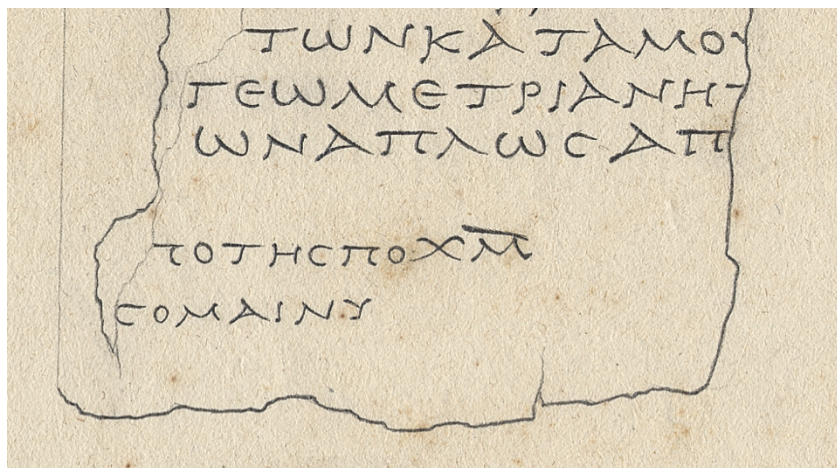 ΤΩΝΚΑΤΑΜΟΥ
ΓΕΩΜΕΤΡΙΑΝΗΤ
ΩΝΑΠΛΩϹΑΠ
ΤΟΤΗϹΠΟΧΜ̅
ϹΟΜΑΙΝΥ